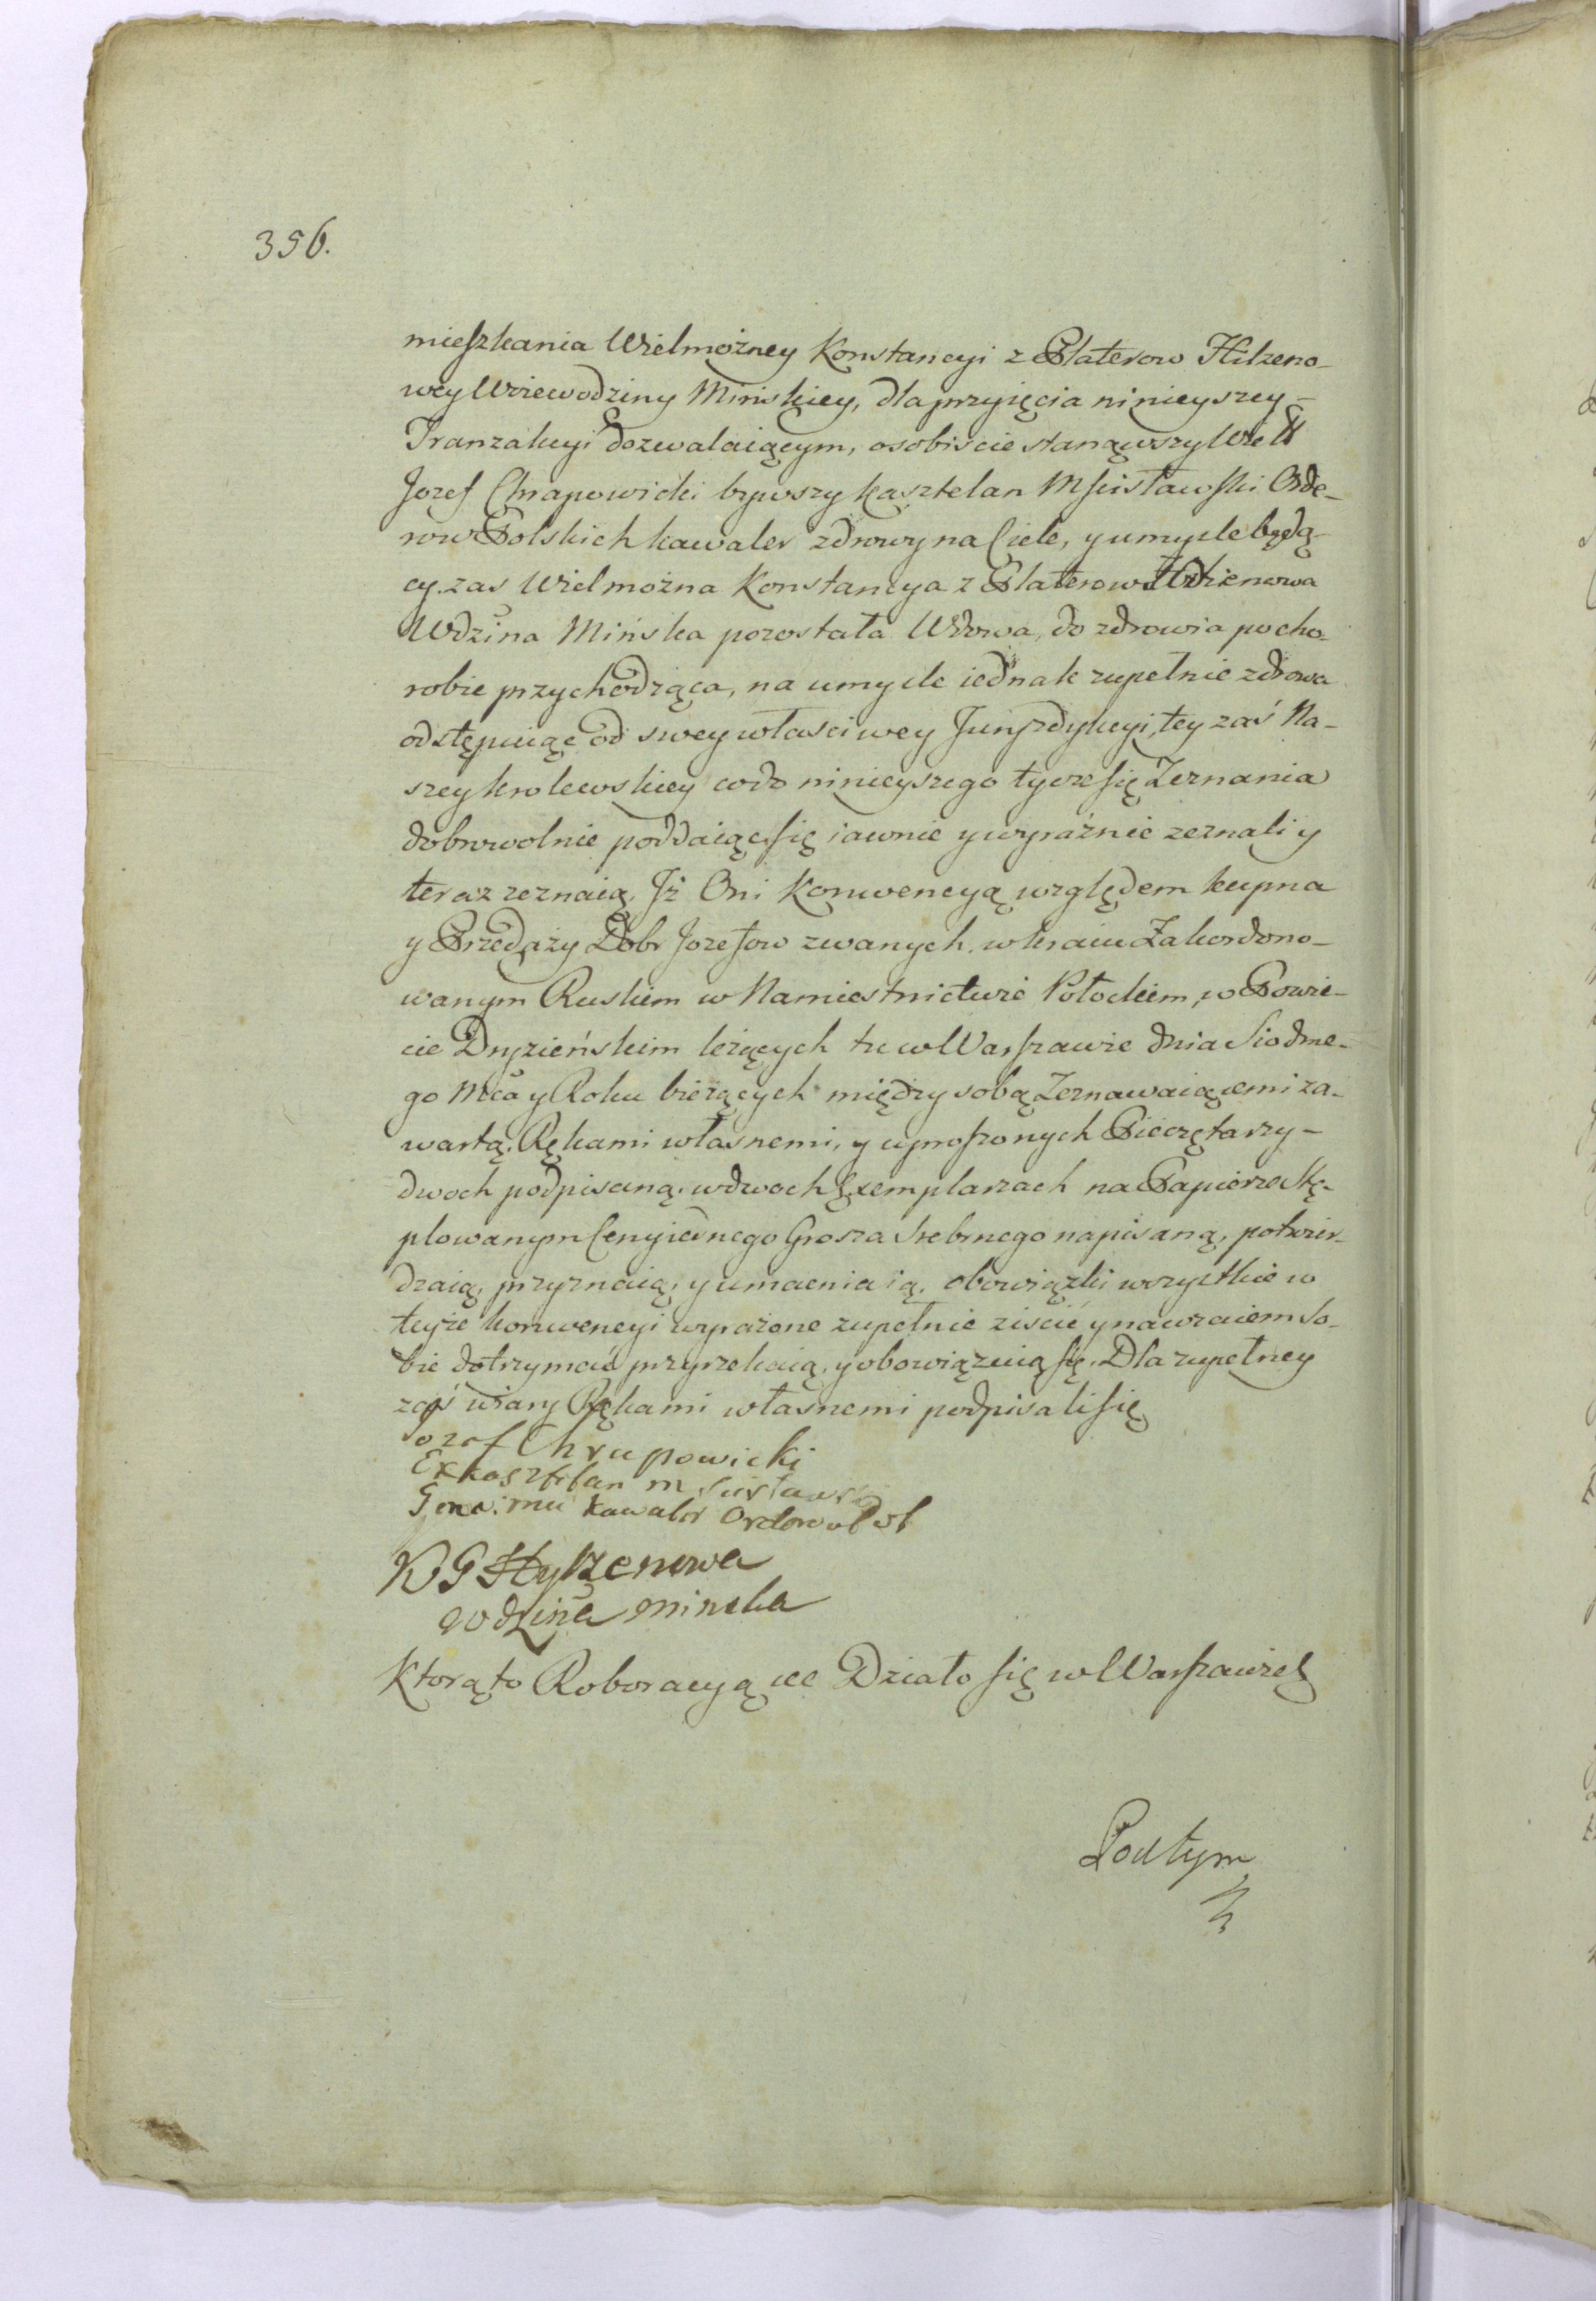 356.
mieszkania Wielmożney Konstancyi z Platerow Hilzeno-
wey Woiewodziny Mińskiey, dla przyięcia ninieyszey-
Tranzakcyi dozwalaiącym, osobiscie stanąwszy
Jozef Chrapowicki bywszy kasztelan Mscisławski Orde-
row Polskich kawaler zdrowy na Ciele, y umysle będą-
cy. zas Wielmożna Konstancya z Platerow
Wdzina Mińska pozostała Wdowa, do zdrowia po cho-
robie przychodząca, na umysle iednak zupełnie zdrowa
odstępuiąc od swey własciwey Juryzdykcyi, tey zaś Na-
szey krolewskiey co do ninieyszego tycze się Zeznania
dobrowolnie poddaiąc się iawnie y wyraźnie zeznali y
teraz zeznaią, Jż Oni Konwencyą względem kupna
y Przedaży Dobr Jozefow zwanych, w kraiu Zakordono-
wanym Ruskim w Namiestnictwie Połockiem, w Powie-
cie Dryzieńskim leżących tu w Warszawie dnia Siodme-
go Mca y Roku bieżących między sobą Zeznawaiącemi za-
wartą, Rękami własnemi, y uproszonych Pieczętarzy-
dwoch podpisaną, w dwoch Exemplarzach na Papierze Stę-
plowanym Ceny iednego Grosza Srebrnego napisaną, potwier-
dzaią, przyznaią, y umacniaią, obowiązki wszystkie w
teyże konwencyi wyrażone zupełnie ziscić y nawzaiem So-
bie dotrzymać przyrzekaią, y obowiązuią się. Dla zupełney
zaś wiary Rękami własnemi podpisali się
Jozef Chrapowicki
Exkasztelan Mscisławski
Kawaler Orderow Pol
K G Hylzenowa
wodzina minska
Ktorą to Roboracyą &c Działo się w Warszawie
Poczym